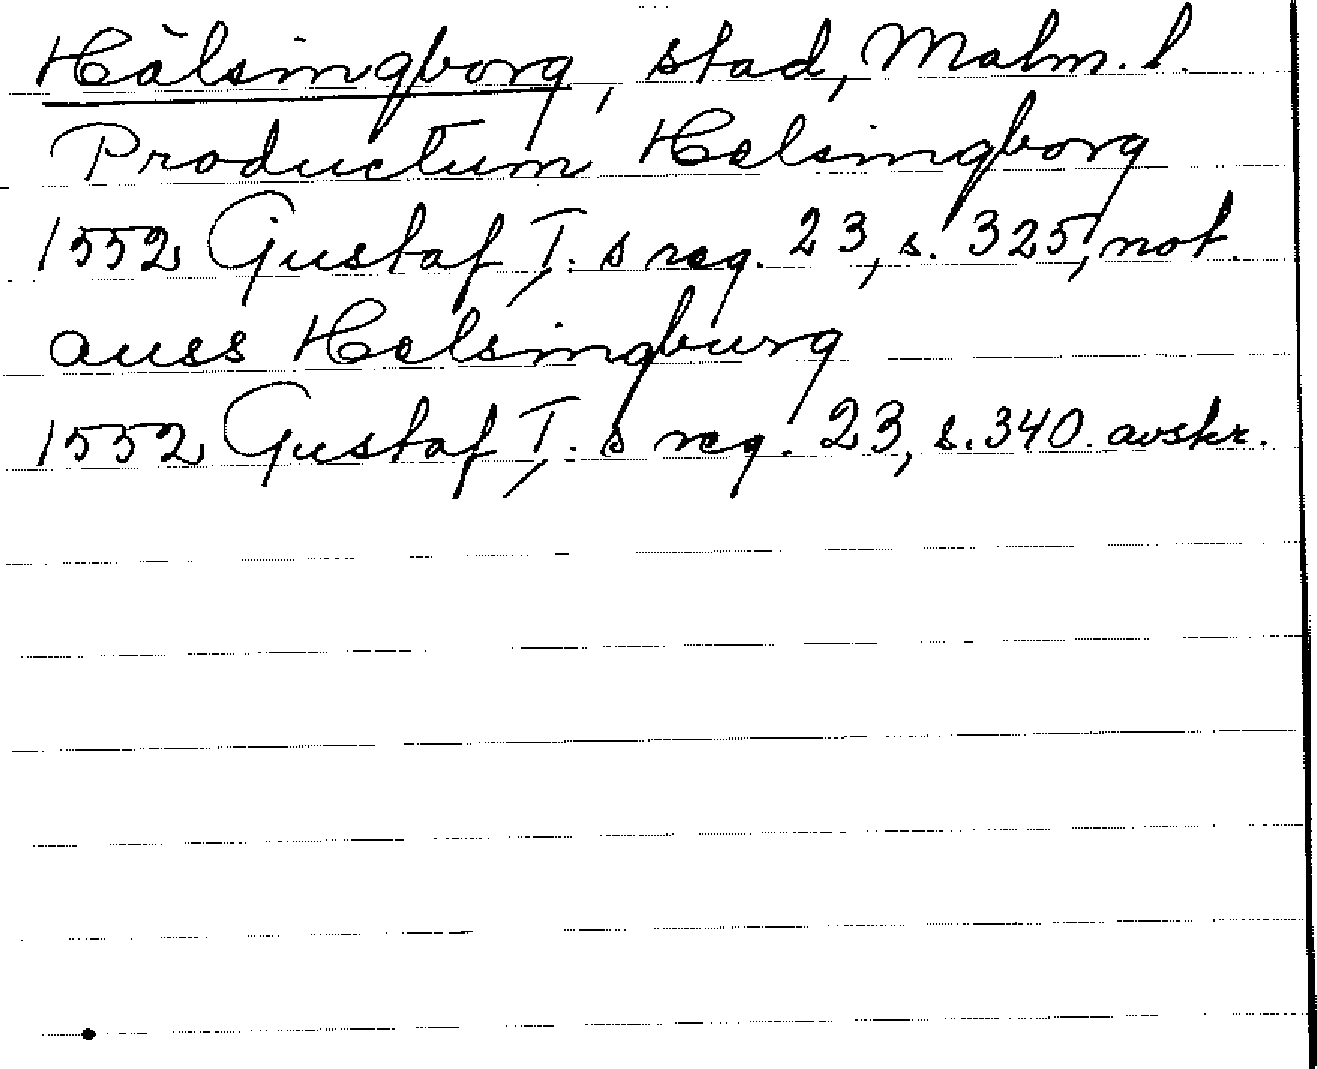 Hälsingborg, stad, Malm. l.
Productum Helsingborg
1552 Gustaf I:s reg. 23, s. 325, not.
auss Helsingburg
1552 Gustaf I:s reg. 23, s. 340. avskr.